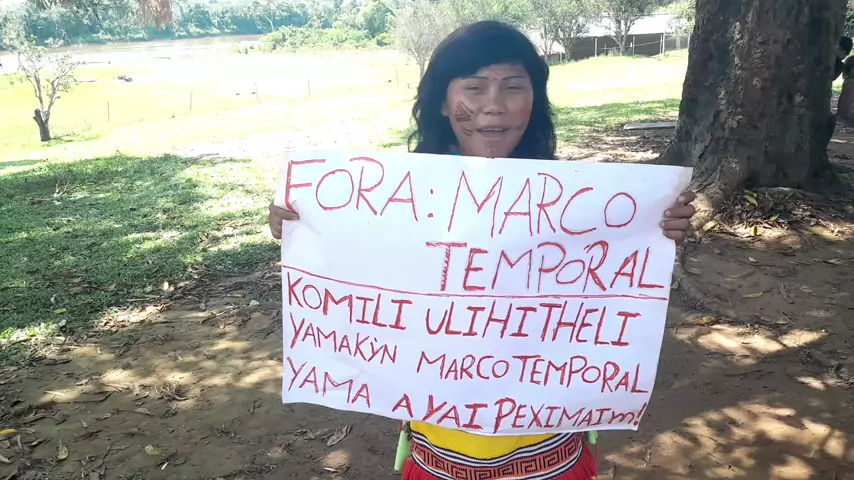 FORA: MARCO
TEMPORAL
KOMILI ULIHITHELI
YAMAKɨN MARCO TEMPORAL
YAMA A YAI PEXIMAIm!